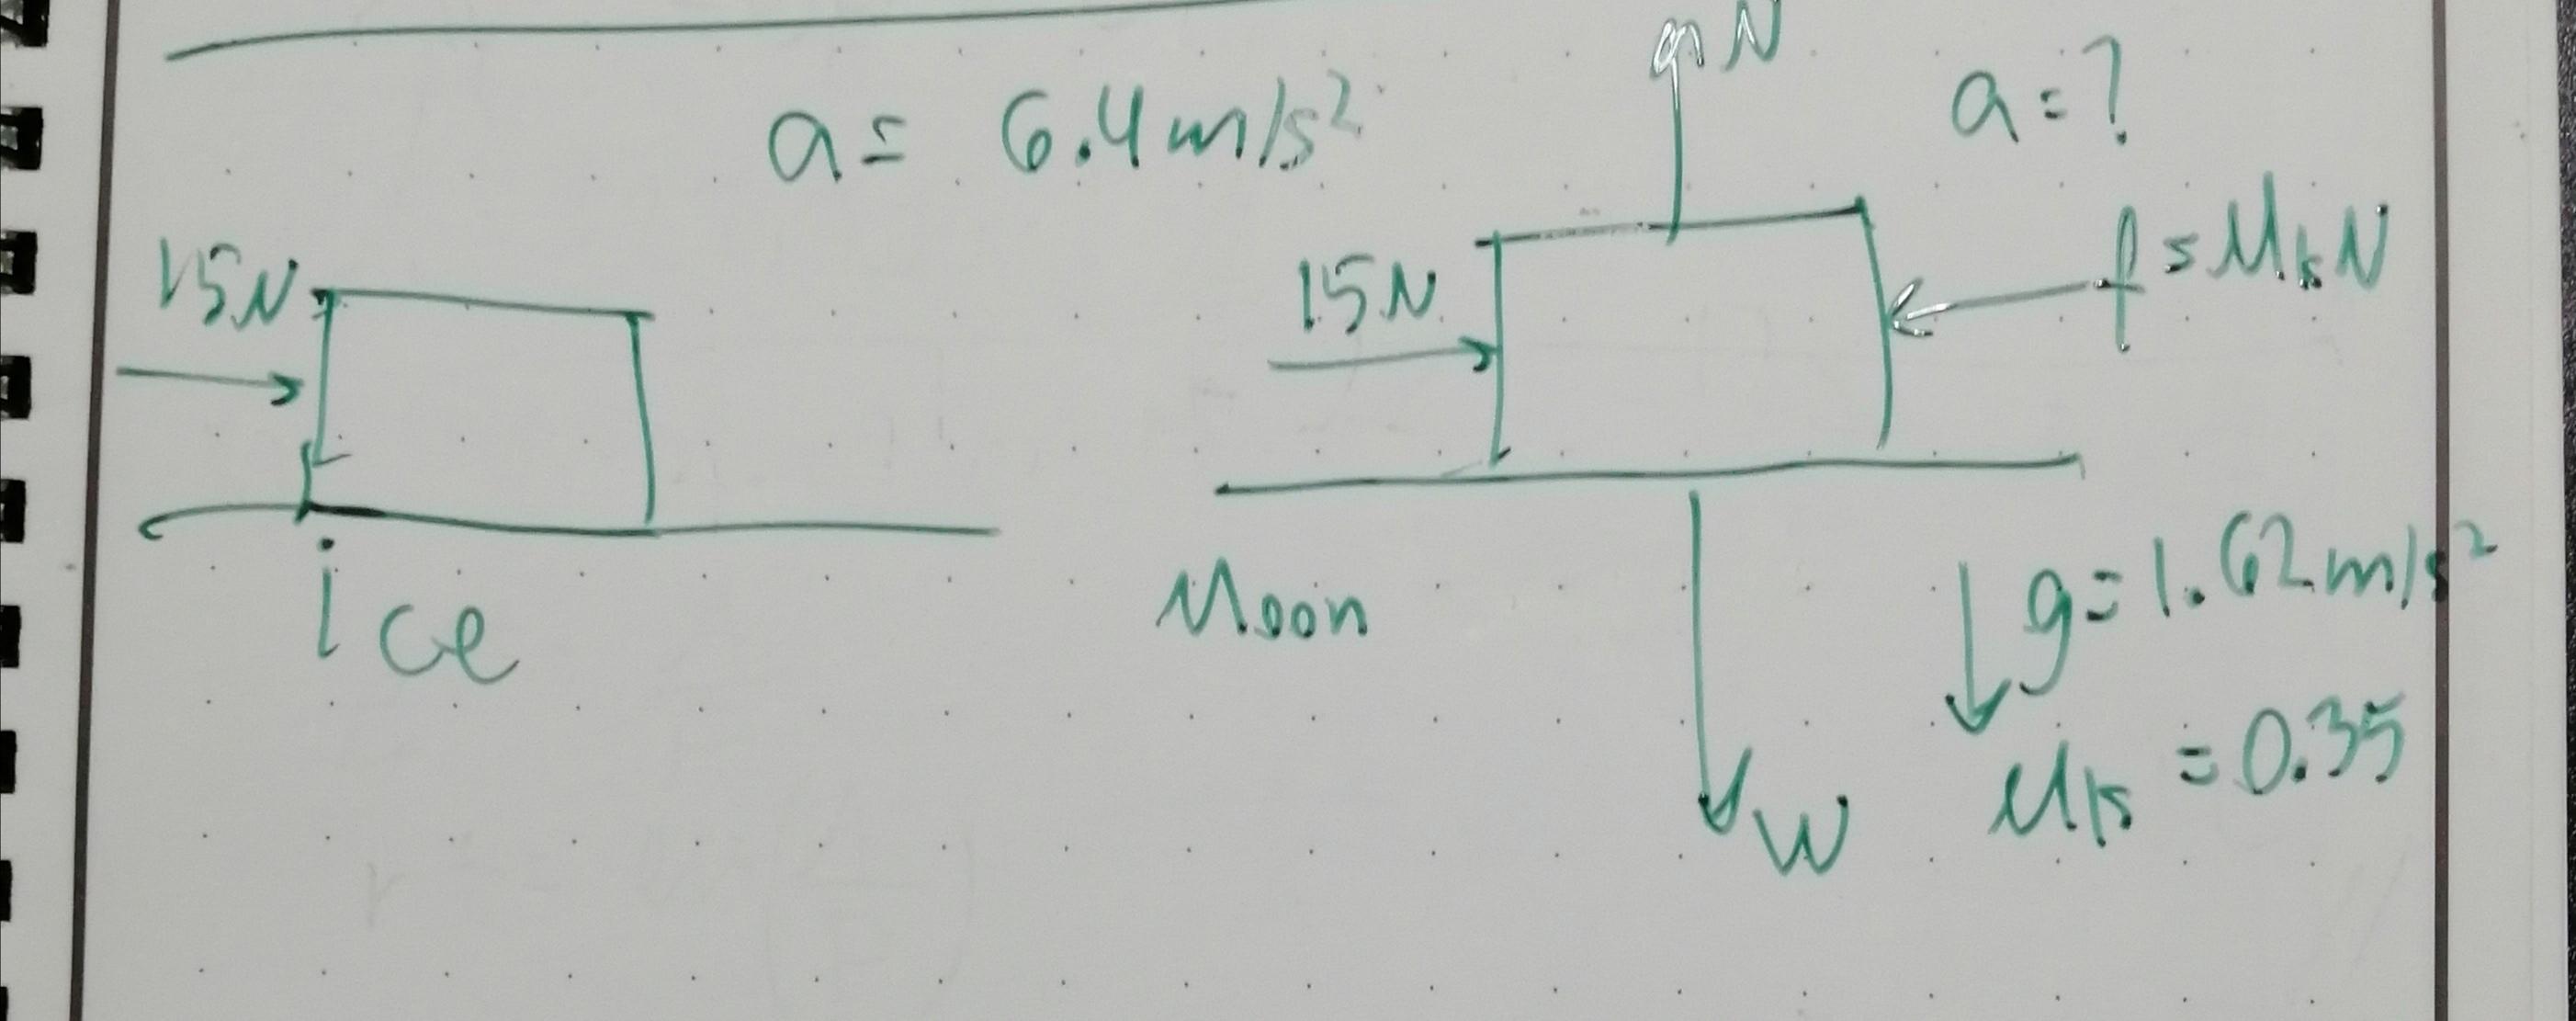 a = 6.4 m/s²
15N
ice
N
a = ?
15N
f = μkN
Moon
g = 1.62 m/s²
μk = 0.35
W